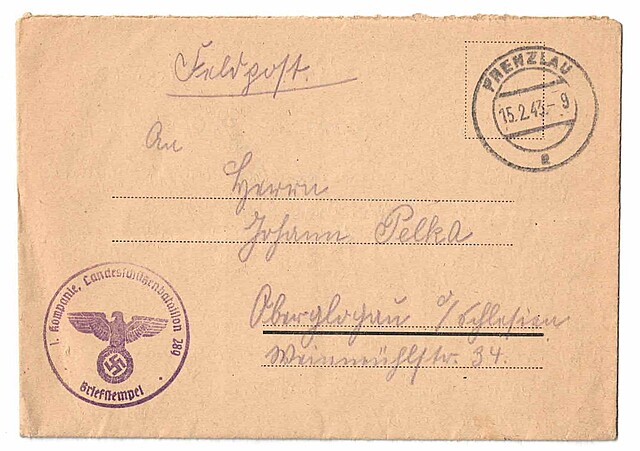 Feldpost.
PRENZLAU
15.2.43.-9
a
An
Herrn
Johann Pelka
Oberglogau o/Schlesien
Weinmühlstr. 34.
1. Kompanie, Landesschützenbataillon 289
Briefstempel